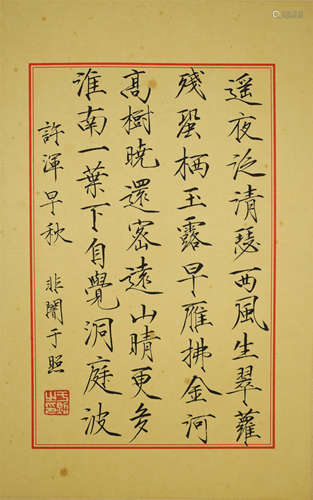 遙夜泛清瑟西風生翠蘿
殘螢栖玉露早雁拂金河
高樹曉還密遠山晴更多
淮南一葉下自覺洞庭波
許渾早秋 非闇于照